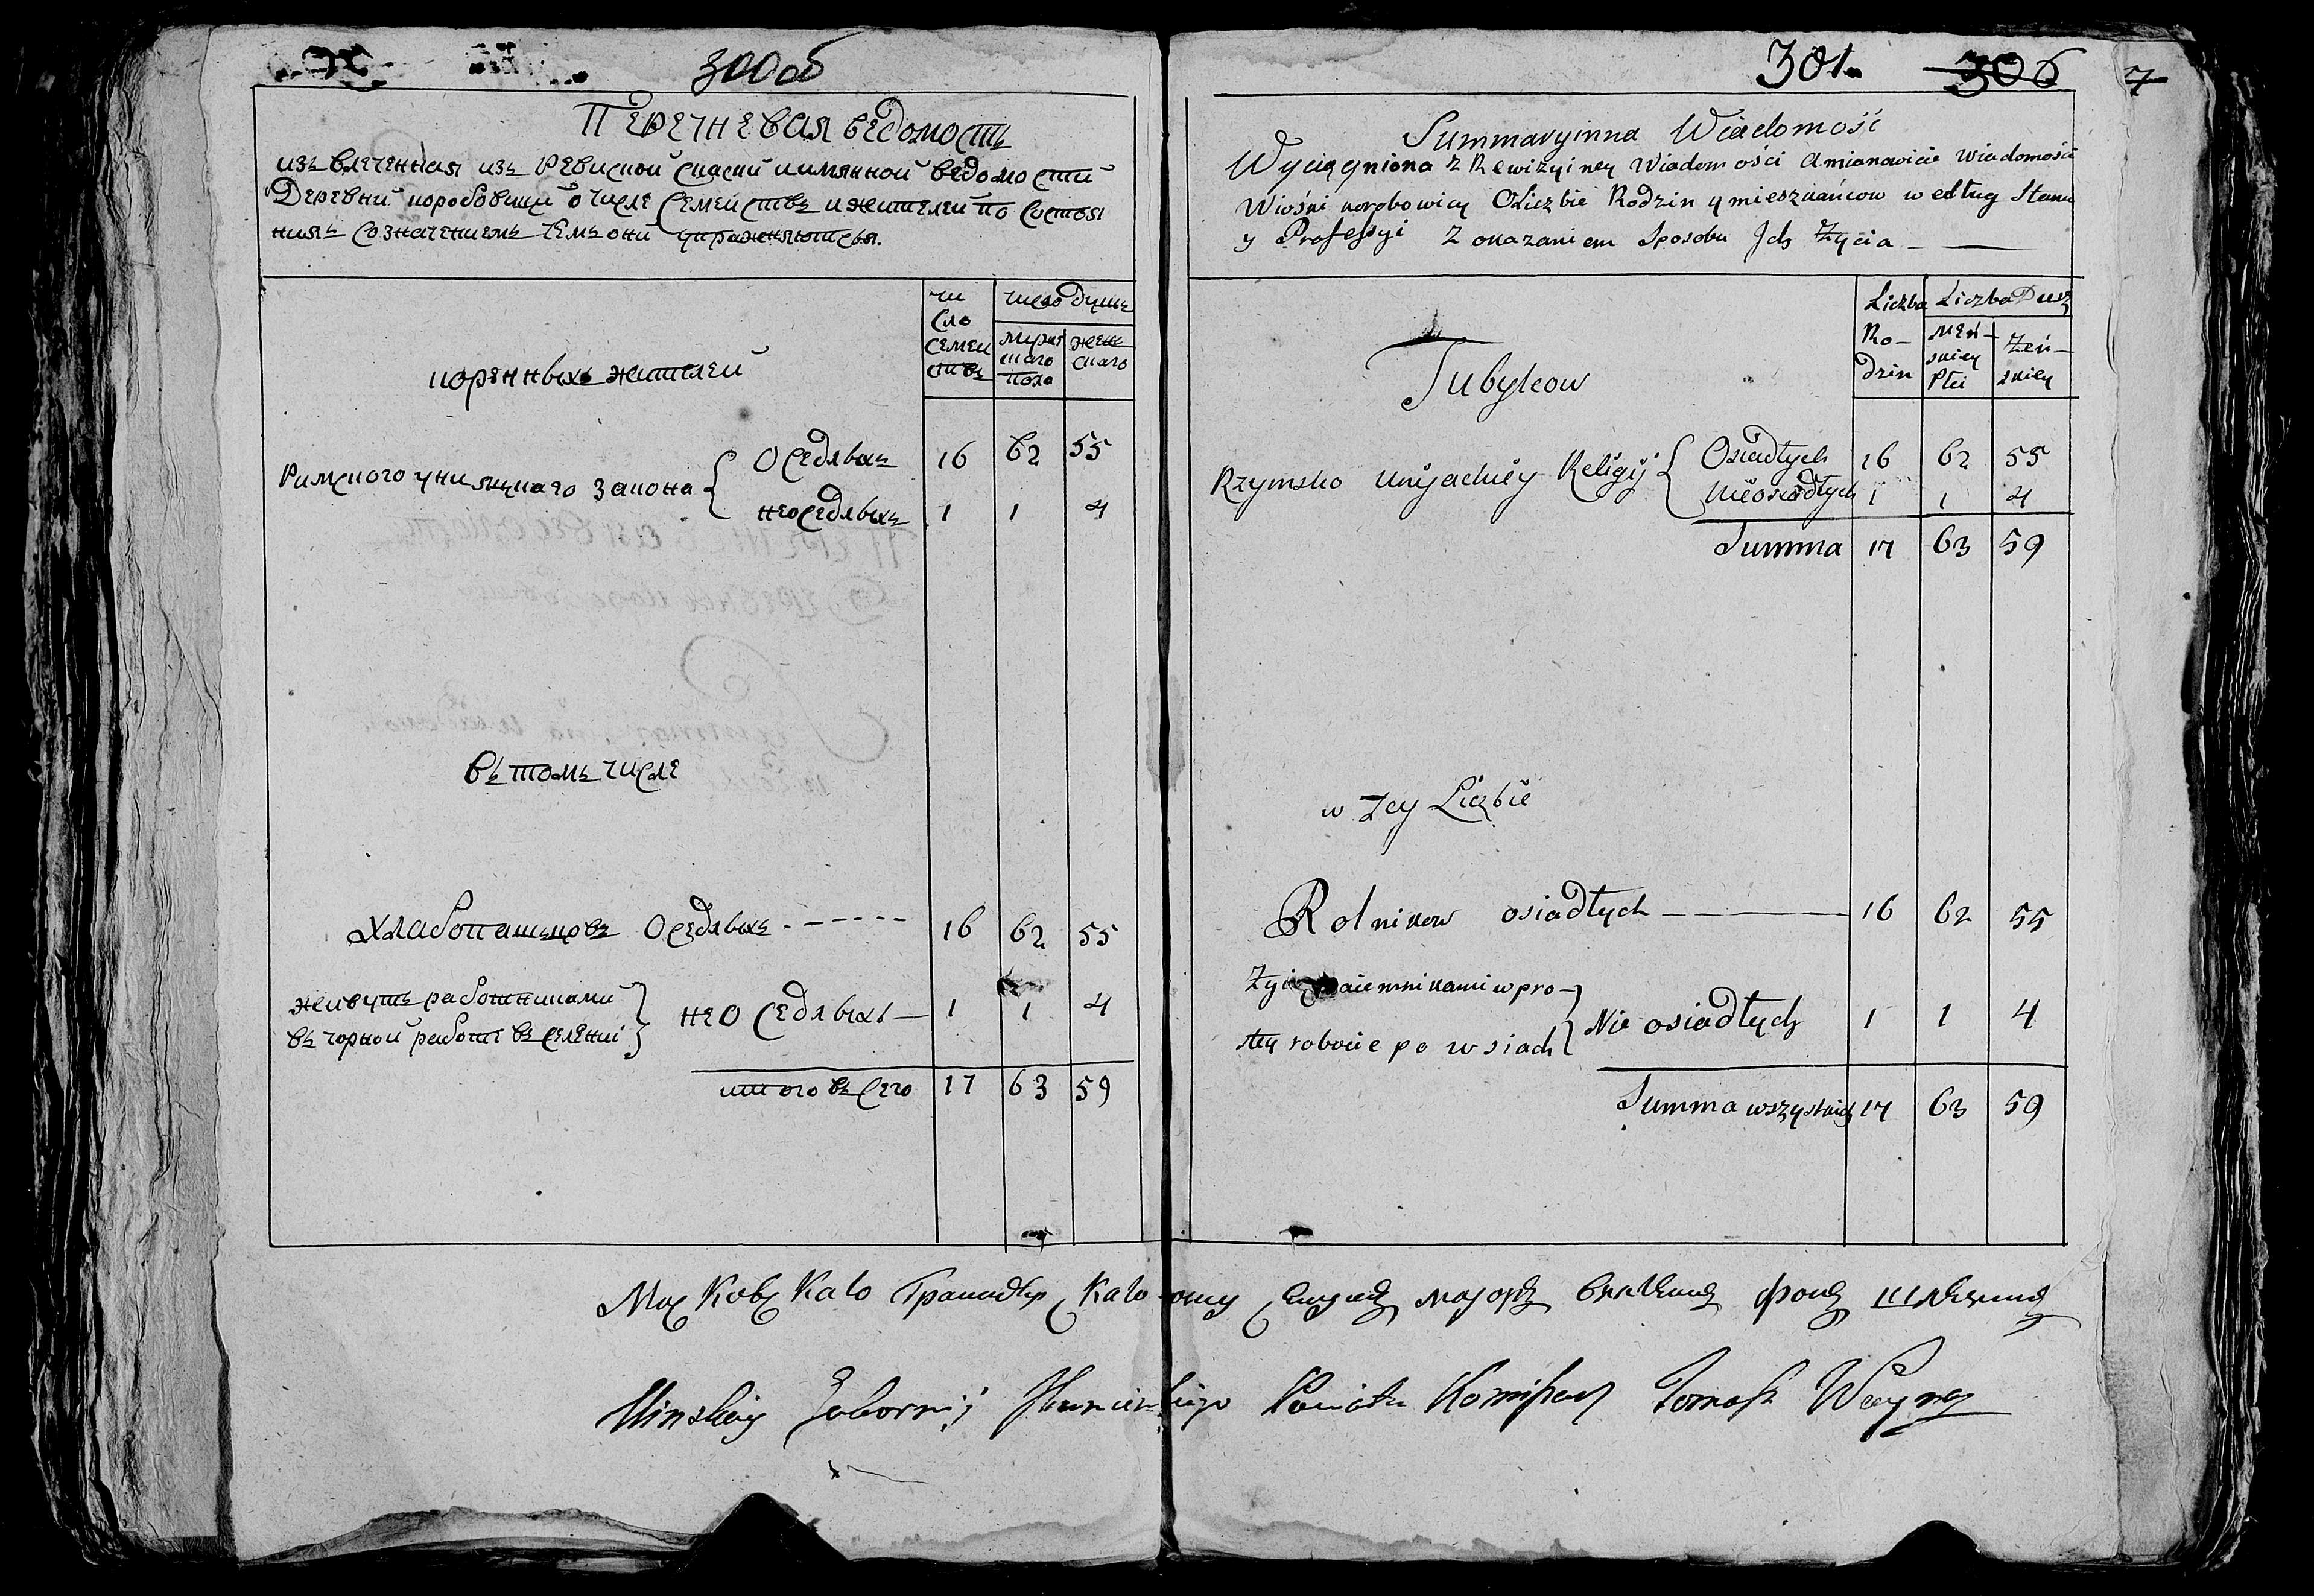 300 об
Перечневая ведомость
извлеченная изъ Ревиской скаски иимянной ведомости
Деревни коробовичи о числе семействъ и жителей по состоя
ниямъ созначениемъ чемъ они упражняются.
коренныхъ жителей
чи
сло
семеи
ствъ
число душъ
мужес
каго
пола
жен
скаго
Римского униятскаго закона { Оседлыхъ 16 62 55
неоседлыхъ 1 1 4
въ томъ числе
хлабопашцовъ Оседлыхъ 16 62 55
живутъ работниками
въ чорной работе въ селени } неоседлыхъ 1 1 4
итого всего 17 63 59
301. 306 7
Summaryinna Wiadomość
Wyciągniona z Rewizyiney Wiadomości Amianowicie Wiadomości
Wioski korobowicy Oliczbie Rodzin y mieszkańcow według Stanu
y Professyi z okazaniem Sposobu Ich Życia
Tubylcow
Liczba
Ro-
dzin
Liczba Dusz
Męń-
skiey
Płci
Żeń-
skiey
Rzymsko Unijackiey Religij { Osiadłych 16 62 55
Nieosiadłych 1 1 4
Summa 17 63 59
w tey Liczbie
Rolnikow osiadłych 16 62 55
Żyią naiemnikami w pro-
stey robocie po wsiach } Nie osiadłych 1 1 4
Summa wszystkich 17 63 59
Москов Като Гранадер Като
Minskiey Gubernij Powiatu Komissarz Tomasz